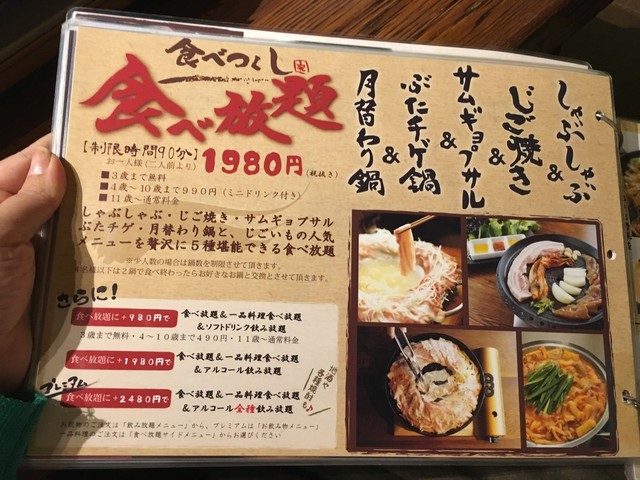 食べつくし
食べ放題
【制限時間90分~】
お一人様(二人前より)
1980円(税抜き)
■3歳まで無料
■4歳~10歳まで990円(ミニドリンク付き)
■11歳~通常料金
しゃぶしゃぶ・じご焼き・サムギョプサル
ぶたチゲ・月替わり鍋と、じごいもの人気
メニューを贅沢に5種堪能できる食べ放題
※少人数の場合は鍋数を制限させて頂きます。
名様以下は2鍋で食べ終わったらお好きなお鍋と交換とさせて頂きます。
さらに!
食べ放題に+980円で
食べ放題&一品料理食べ放題
&ソフトドリンク飲み放題
3歳まで無料・4~10歳まで490円・11歳~通常料金
食べ放題に+1980円で
食べ放題&一品料理食べ放題
&アルコール飲み放題
プレミアム
食べ放題に+2480円で
食べ放題&一品料理食べ放題
&アルコール全種飲み放題
地酒や
各種焼酎も♪
お飲物のご注文は「飲み放題メニュー」から、プレミアムは「お飲み物メニュー」
一品料理のご注文は「食べ放題サイドメニュー」からお選びください
しゃぶしゃぶ
&
じご焼き
&
サムギョプサル
&
ぶたチゲ鍋
&
月替わり鍋